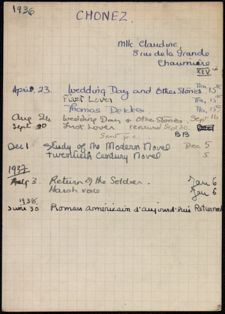 1936
CHONEZ.
Mlle Claudine,
8 rue de la Grande
Chaumière
XIV
April 23. Wedding Day and Other Stories
First Lover
Thomas Dekker
Aug 26 Wedding Day & Other Stories. Sept 16
Sept 20 First Lover renewed Sept 20.
BB
Dec 1 Study of the Modern Novel Dec 5
Twentieth Century Novel 5
1937
3 Return of the Soldier. Jan 6
Harsh voice Jan 6
1938
30 Roman américain d'aujourd'hui Returned